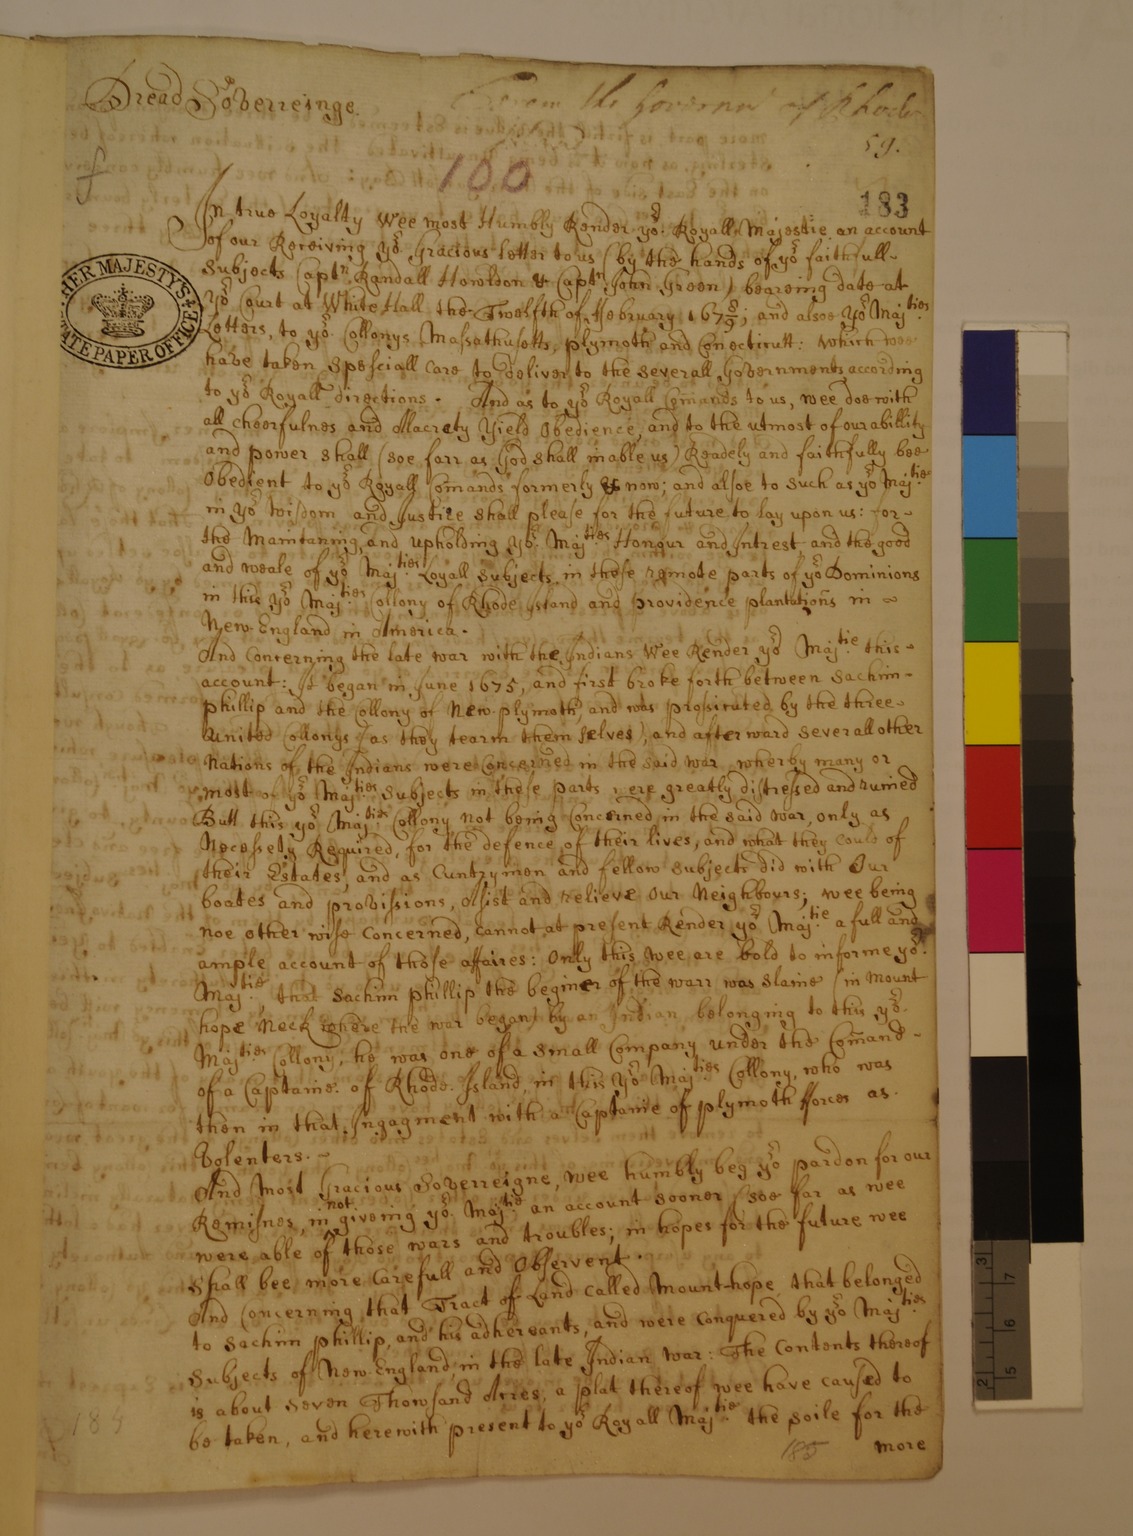 Dread Soverreinge.
From the Governor of Rhode
59.
100
183
In true Loyalty Wee most Humbly Render yor Royall Majestie an account
of our Receiving yor Gracious Letter to us (by the hands of yor faithfull
Subjects Captn Randall Howldon & Captn John Green) beareing date at
yor Court at White Hall the Twelfth of ffebruary 167 8/9; and alsoe yor Majties
Letters, to yor Collonys Massathusetts, plymoth and Conecticutt: which wee
have taken Spesciall Care to deliver to the Severall Governments according
to yor Royall directions. And as to yor Royall Comands to us, wee doe with
all cheerfulnes and Allacrety Yield Obedience, and to the utmost of our abillity
and power shall (soe farr as God shall inable us) Readely and faithfully bee
Obedient to yor Royall Comands formerly & now; and alsoe to such as yor Majtie
in yor Wisdom and Justice shall please for the future to lay upon us: for
the Maintaning and upholding yor Majties Honour and Intrest, and the good
and weale of yor Majties Loyall Subjects in these remote parts of yor Dominions
in this yor Majties Collony of Rhode Island and providence plantations in
New-England in America.
And Concerning the late war with the Indians Wee Render yor Majtie this
account: It began in June 1675, and first broke forth between Sachim
phillip and the Collony of New-plymoth, and was prossicuted by the three
United Collonys (as they tearm them selves), and afterward Severall other
Nations of the Indians were Concerned in the said war, wherby many or
most of yor Majties Subjects in these parts were greatly distressed and ruined
Butt this yor Majties Collony not being Concerned in the said war, only as
Necessety Required, for the defence of their lives, and what they could of
their Estates, and as Cuntrymen and fellow Subjects did with Our
boates and provissions, Asist and relieve Our Neighbours; wee being
noe other wise Concerned, Cannot at present Render yor Majtie a full and
ample account of those affaires: Only this wee are bold to informe yor
Majtie that Sachim phillip the beginer of the warr was Slaine (in Mount
hope Neck where the war began) by an Indian belonging to this yor
Majties Collony, he was one of a small Company under the Comand
of a Captaine of Rhode-Island in this yor Majties Collony, who was
then in that Ingagment with a Captaine of plymoth fforces as
Volenters.
And Most Gracious Soverreigne, wee humbly beg yor pardon for our
Remisnes, in not giveing yor Majtie an account sooner (soe far as wee
were able of those wars and troubles; in hopes for the future wee
Shall bee more Carefull and Observent.
And Concerning that Tract of Land Called Mount-hope that belonged
to Sachim phillip, and his adhereants, and were Conquered by yor Majties
Subjects of New-England, in the late Indian War: The Contents thereof
is about Seven Thowsand Acres, a plat thereof wee have caused to
be taken, and herewith present to yor Royall Majtie the Soile for the
more
185
184
HER MAJESTY'S
STATE PAPER OFFICE